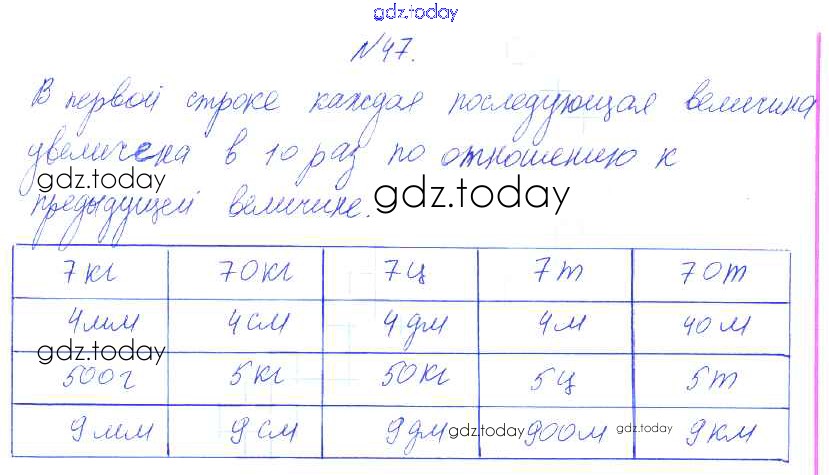 gdz.today
№47.
В первой строке каждая последующая величина
увеличена в 10 раз по отношению к
gdz.today
предыдущей величине.
gdz.today
7кг 70кг 7ц 7т 70т
4мм 4см 4дм 4м 40м
gdz.today
500г 5кг 50кг 5ц 5т
9мм 9см 9дм 900м 9км
gdz.today
gdz.today